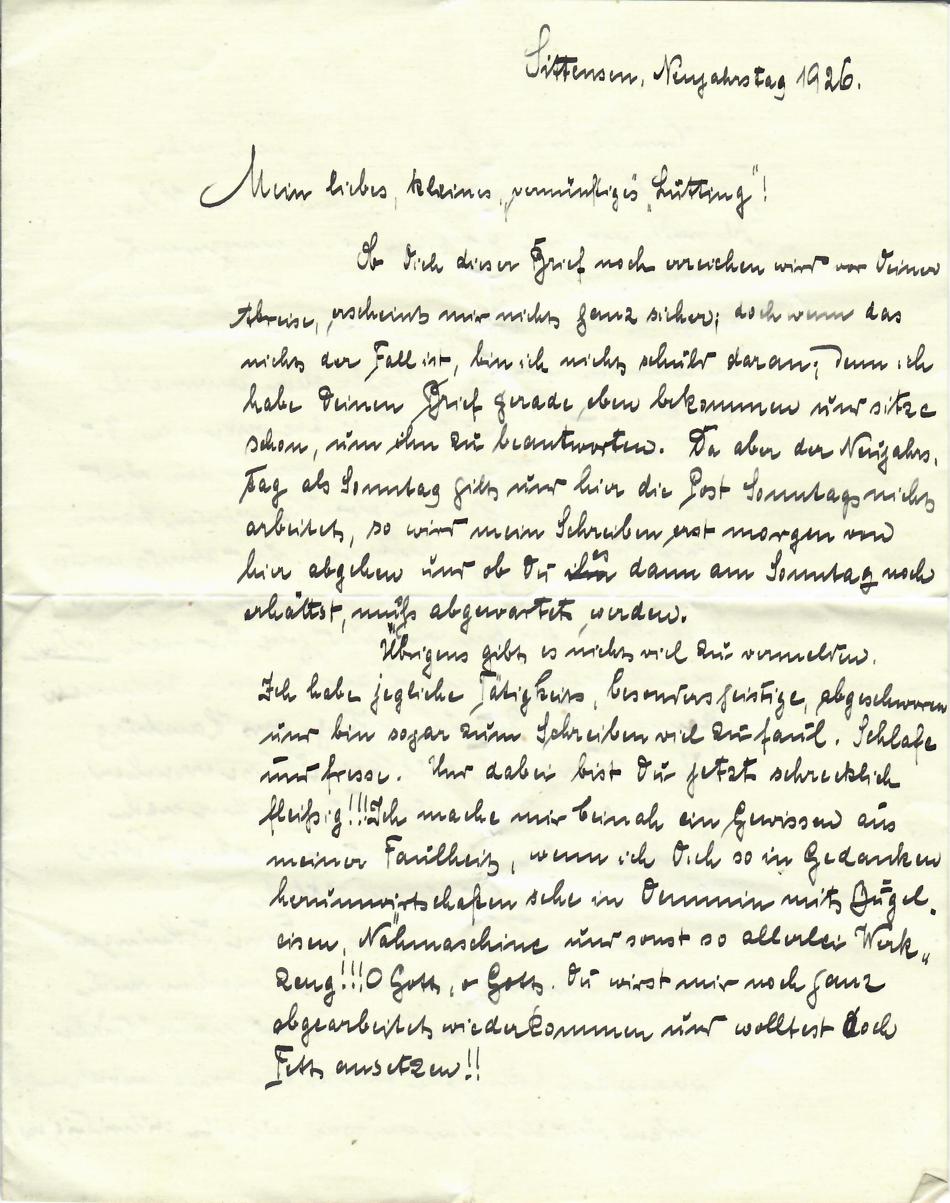 Sittensen, Neujahrstag 1926.
Mein liebes, kleines „vernünftiges" „Lütting"!
Ob Dich dieser Brief noch erreichen wird vor Deiner
Abreise, erscheint mir nicht ganz sicher; doch wenn das
nicht der Fall ist, bin ich nicht schuld daran; denn ich
habe Deinen Brief gerade eben bekommen und sitze
schon, um ihn zu beantworten. Da aber der Neujahrs-
tag als Sonntag gilt und hier die Post Sonntags nicht
arbeitet, so wird mein Schreiben erst morgen von
hier abgehen und ob Du es dann am Sonntag noch
erhältst, muß abgewartet werden.
Übrigens gibt es nicht viel zu vermelden.
Ich habe jegliche Tätigkeit, besonders geistige, abgeschworen
und bin sogar zum Schreiben viel zu faul. Schlafe
und fresse. Und dabei bist Du jetzt schrecklich
fleißig!!! Ich mache mir beinah ein Gewissen aus
meiner Faulheit, wenn ich Dich so in Gedanken
herumwirtschaften sehe in Demmin mit Bügel-
eisen, Nähmaschine und sonst so allerlei Werk-
zeug!!! O Gott, o Gott. Du wirst mir noch ganz
abgearbeitet wiederkommen und wolltest doch
Fett ansetzen!!